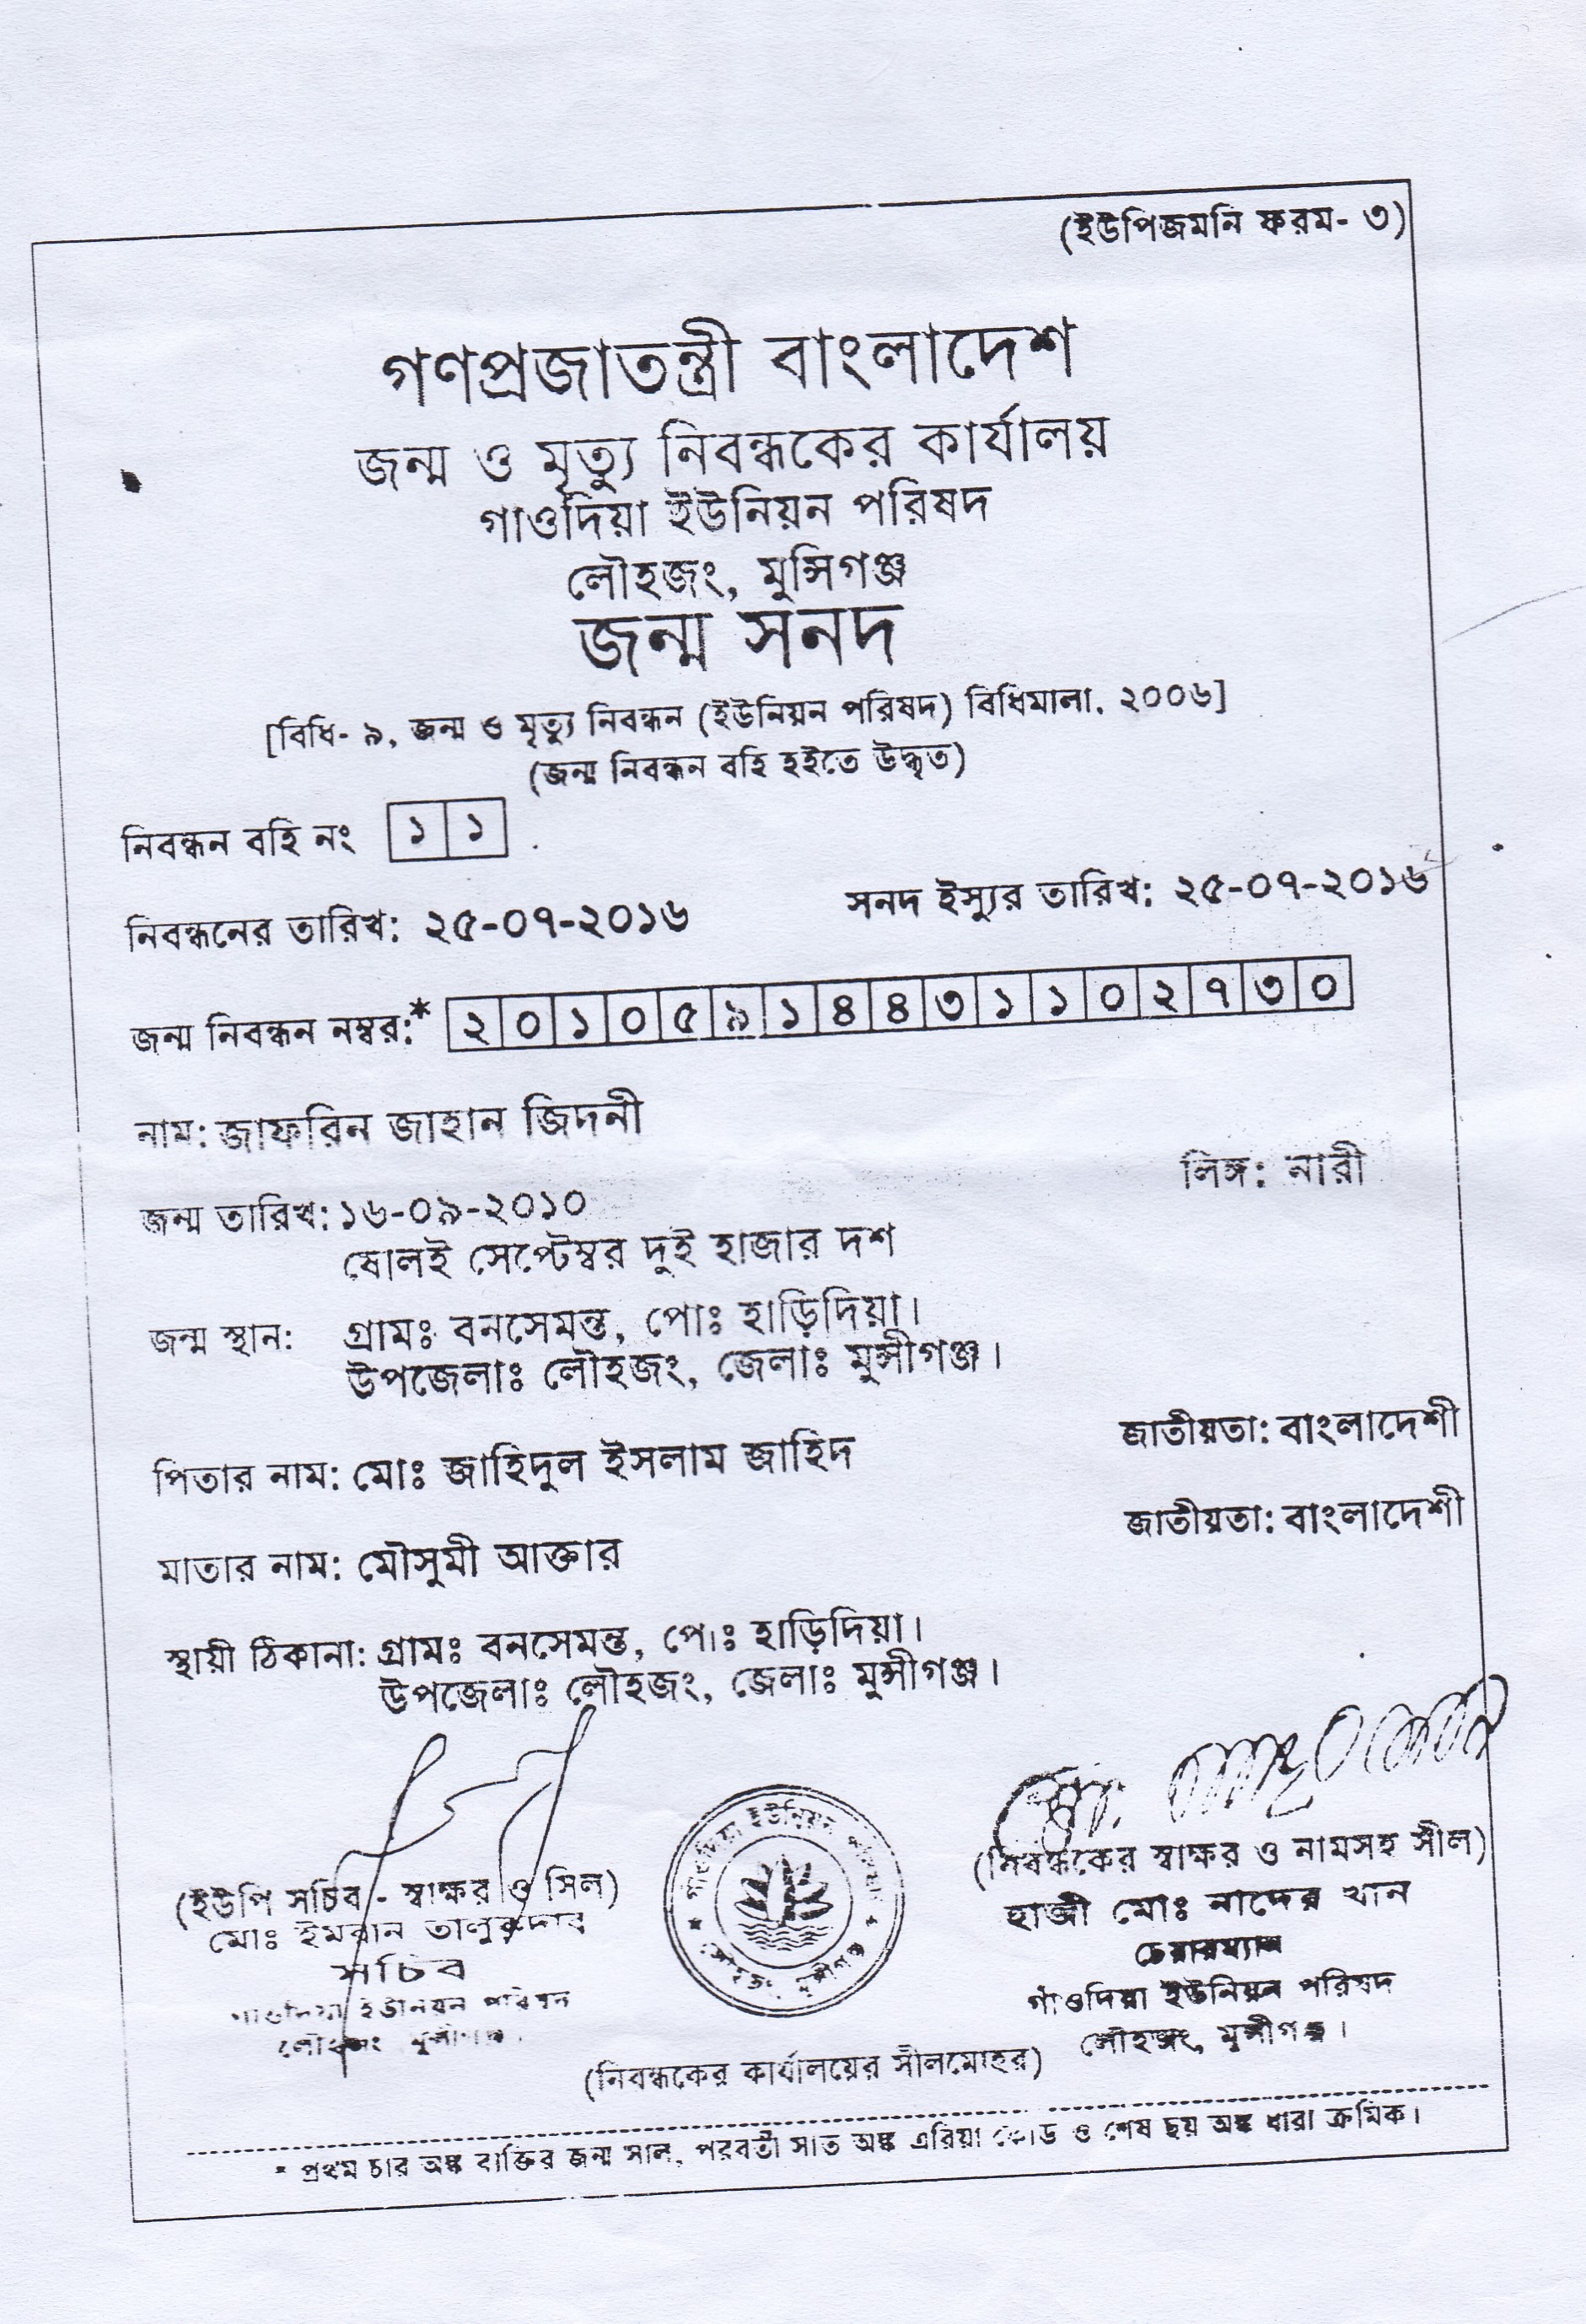 (ইউপিজমনি ফরম- ৩)
গণপ্রজাতন্ত্রী বাংলাদেশ
জন্ম ও মৃত্যু নিবন্ধকের কার্যালয়
গাওদিয়া ইউনিয়ন পরিষদ
লৌহজং, মুন্সিগঞ্জ
জন্ম সনদ
[বিধি- ৯, জন্ম ও মৃত্যু নিবন্ধন (ইউনিয়ন পরিষদ) বিধিমালা, ২০০৬]
(জন্ম নিবন্ধন বহি হইতে উদ্ধৃত)
নিবন্ধন বহি নং ১১
নিবন্ধনের তারিখ: ২৫-০৭-২০১৬ সনদ ইস্যুর তারিখ: ২৫-০৭-২০১৬
জন্ম নিবন্ধন নম্বর:* ২০১০৫৯১৪৪৩১১০২৭৩০
নাম: জাফরিন জাহান জিদনী
লিঙ্গ: নারী
জন্ম তারিখ: ১৬-০৯-২০১০
ষোলই সেপ্টেম্বর দুই হাজার দশ
জন্ম স্থান: গ্রামঃ বনসেমন্ত, পোঃ হাড়িদিয়া।
উপজেলাঃ লৌহজং, জেলাঃ মুন্সীগঞ্জ।
পিতার নাম: মোঃ জাহিদুল ইসলাম জাহিদ জাতীয়তা: বাংলাদেশী
মাতার নাম: মৌসুমী আক্তার জাতীয়তা: বাংলাদেশী
স্থায়ী ঠিকানা: গ্রামঃ বনসেমন্ত, পোঃ হাড়িদিয়া।
উপজেলাঃ লৌহজং, জেলাঃ মুন্সীগঞ্জ।
(ইউপি সচিব - স্বাক্ষর ও সিল)
মোঃ ইমরান তালুকদার
সচিব
গাওদিয়া ইউনিয়ন পরিষদ
লৌহজং মুন্সীগঞ্জ।
গাওদিয়া ইউনিয়ন পরিষদ
লৌহজং, মুন্সীগঞ্জ
(নিবন্ধকের স্বাক্ষর ও নামসহ সীল)
হাজী মোঃ নাদের খান
চেয়ারম্যান
গাঁওদিয়া ইউনিয়ন পরিষদ
লৌহজং, মুন্সীগঞ্জ।
(নিবন্ধকের কার্যালয়ের সীলমোহর)
* প্রথম চার অঙ্ক ব্যক্তির জন্ম সাল, পরবর্তী সাত অঙ্ক এরিয়া কোড ও শেষ ছয় অঙ্ক ধারা ক্রমিক।